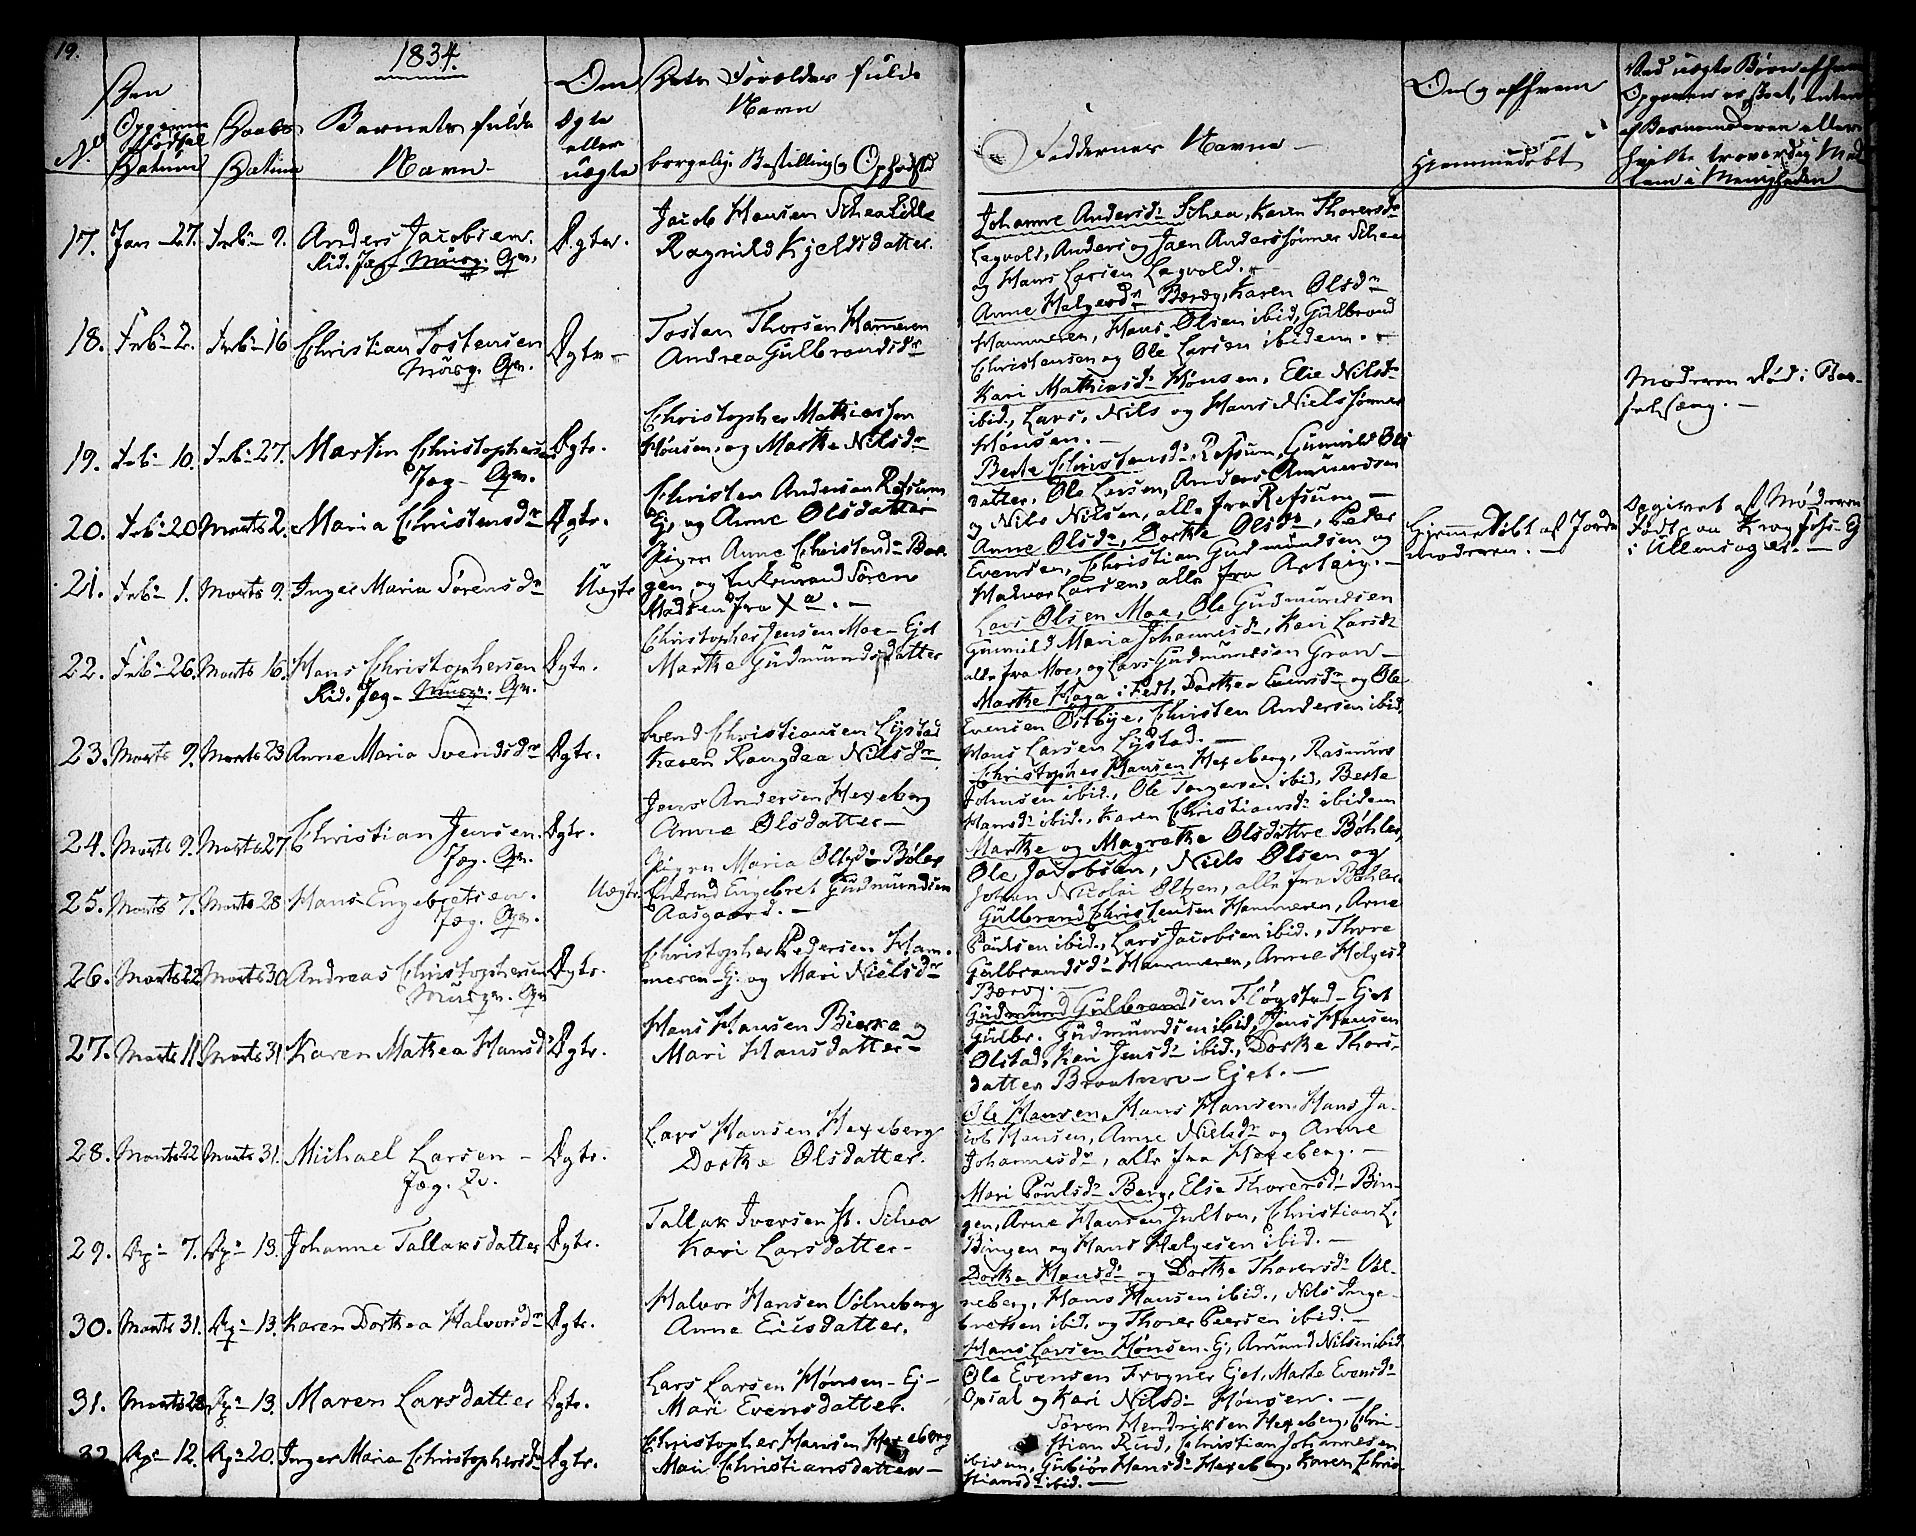 19.
1834.
Den
Opgivne
Fødsel
Datum
No
Daabs
Datum
Barnets fulde
Navn
Om
Ægte
eller
uægte
Forældres fulde
Navn
borgelige Bestilling og Opholdsted
Faddernes Navne
Om og af hvem
Hjemmedøbt
Ved uægte Børn af hvem
Opgaven er skeet, enten
af Barnemoderen eller
hvilke troværdig Med
lem i Menigheden
17. Jan-27. Feb- 9. Anders Jacobsen. Ægte. Jacob Hansen Schea
Ragnild Kjeldsdatter.
Johanne Andersd: Schea, Karen Thoresd:
Legvold, Anders og Jaen Anderssønner Schea
og Hans Larsen Legvold.
18. Feb- 2. Feb- 16 Christian Tostensen Ægte - Tosten Thorsen Hammeren
Andrea Gulbrandsdr
Anne Helgesdr Berg, Karen Olsdr
Hammeren, Hans Olsen ibid, Gulbrand
Christensen og Ole Larsen ibidem.
19. Feb- 10. Feb- 27. Martin Christophersen Ægte. Christopher Mathiassen
Hønsen, og Marthe Nilsdr
Kari Mathiasd: Hønsen, Elie Nilsdr
ibid, Lars, Nils og Hans Nielssønner
Hønsen. -
Moderen død i Bar-
selseng. -
20. Feb- 20 Marts 2. Maria Christensdr Ægte. Christen Andersen Refsum
Ej. og Anne Olsdatter
Berte Christensd: Refsum, Gunnild Ols
datter, Ole Larsen, Anders Amundsen
og Nils Nilsen, alle fra Refsum -
21. Feb- 1. Marts 9. Inger Maria Sørensdr Uægte Pigen Anne Christensd: Bor-
gen og Enkemand Søren
Madsen fra Xa. -
Anne Olsdr, Dorthe Olsdr, Peder
Evensen, Christian Gudmundsen og
Halvor Larsen, alle fra Asteig. -
Hjemmedøbt af Jorde
moderen. -
Opgivet af Moderen
født paa
i Ullensager. -
22. Feb- 26. Marts 16. Hans Christophersen Ægte. Christopher Jensen Moe - Ejet
Marthe Gudmundsdatter
Lars Olsen Moe, Ole Gudmundsen
Gunnild Maria Johannesdr, Kari Larsdr
alle fra Moe, og Lars Gudmundsen Gran -
23. Marts 9. Marts 23 Anne Maria Svendsdr Ægte. Svend Christiansen Lystad
Karen Rangdea Nilsdr
Marthe Haga i Fedt, Dorthea Evensdr og Ole
Evensen Østbye, Christen Andersen ibid,
Hans Larsen Lystad. -
24. Marts 9. Marts 27 Christian Jensen. Ægte. Jens Andersen Hexeberg
Anne Olsdatter -
Christopher Hansen Hexeberg, Rasmus
Johnsen ibid., Ole Torgersen ibid, Berte
Hansdr ibid., Karen Christiansdr ibidem
25. Marts 7. Marts 28. Hans Engebretsen. Uægte Pigen Maria Olsdr Bøler
Enkemand Engebret Gudmundsen
Aasgaard. -
Marthe og Magrethe Olsdattre Bøhler,
Ole Jacobsen, Niels Olsen og
Johan Nicolai Olsen, alle fra Bøhler
26. Marts 22 Marts 30 Andreas Christophersen Ægte. Christopher Pedersen Ham-
meren - Ej. og Mari Nielsdr
Gulbrand Christensen Hammeren, Arne
Poulsen ibid., Lars Jacobsen ibid., Thore
Gulbrandsdr Hammeren, Anne Helgesd
Berg. -
27. Marts 11 Marts 31. Karen Mathea Hansdr Ægte. Hans Hansen Bierke og
Mari Hansdatter -
Gudmund Gulbrandsen Fløgstad - Ejet
Gulbr. Gudmundsen ibid, Jens Hansen
Ølstad, Kari Jensdr ibid., Dorthe Thors-
datter - Ejet. -
28. Marts 22 Marts 31. Michael Larsen - Ægte. Lars Hansen Hexeberg
Dorthe Olsdatter.
Ole Hansen, Hans Hansen, Hans Ja-
cob Hansen, Anne Nielsdr og Anne
Johannesdr, alle fra Hexeberg. -
29. Ap- 7. Ap- 13. Johanne Tallaksdatter Ægte. Tallak Iversen Schea
Kari Larsdatter -
Mari Poulsdr Berg, Else Thoresdr Bin-
gen, Arne Hansen Julton, Christian L.
Bingen og Hans Helgesen ibid. -
30. Marts 31. Ap- 13. Karen Dorthea Halvorsdr Ægte. Halvor Hansen Vølneberg
Anne Ericsdatter.
Dorthe Hansdr og Dorthe Thoresdr Vøl-
neberg, Hans Hansen ibid., Nils Inge-
bretsen ibid. og Thore Peersen ibid. -
31. Marts 28 Ap- 13. Maren Larsdatter Ægte. Lars Larsen Hønsen - Ej -
Mari Evensdatter.
Hans Larsen Hønsen - Ej, Amund Nilsen ibid
Ole Evensen Frogner Ejet, Marte Evensdr
Opsal og Kari Nilsdr Hønsen. -
32 Ap- 12. Ap- 20. Inger Maria Christophersdr Ægte. Christopher Hansen Hexeberg
Mari Christiansdatter -
Søren Hendriksen Hexeberg, Chri-
stian Rud, Christian Johannesen
ibidem, Gubiør Hansdr Hexeberg, Karen Chris
tiansdr ibid. -